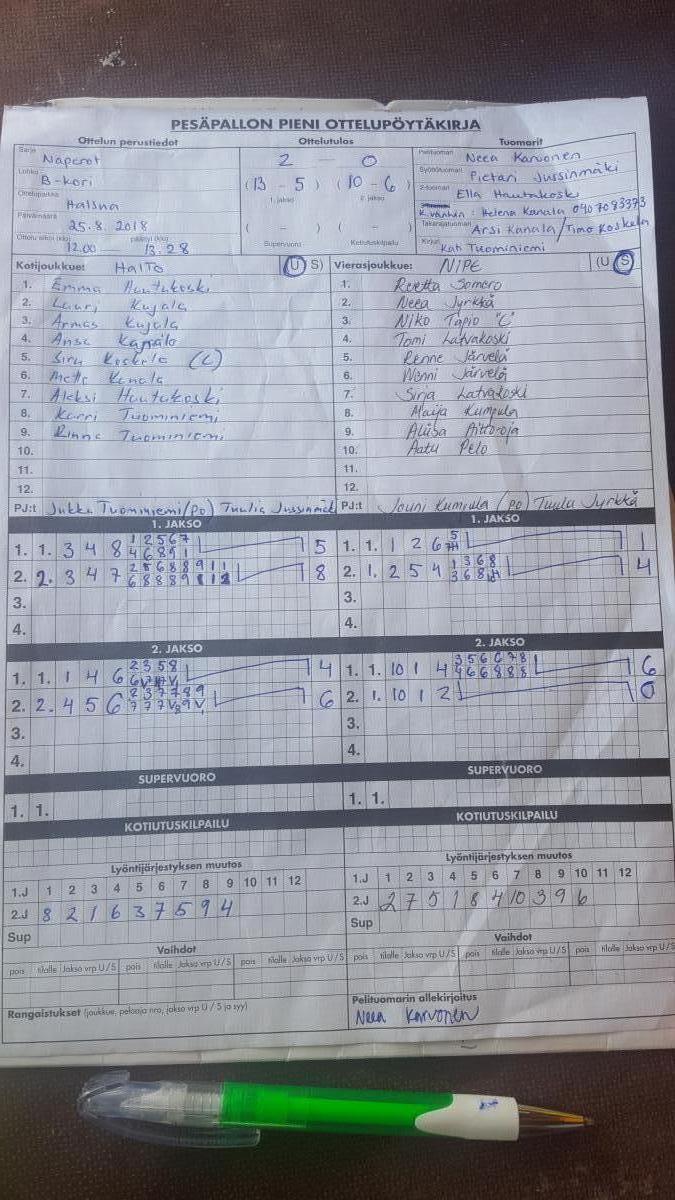 PESÄPALLON PIENI OTTELUPÖYTÄKIRJA
Ottelun perustiedot Ottelutulos Tuomarit
Sarja Naperot
Lohko B-kori
Ottelupaikka Halsua
Päivämäärä 25.8.2018
Ottelu alkoi (klo) 12.00 — päättyi (klo) 13.28
2 — 0
(13 - 5) (10 - 6)
1. jakso 2. jakso
( - ) ( - )
Supervuoro Kotiutuskilpailu
Pelituomari Neea Karvonen
Syöttötuomari Pietari Jussinmäki
2-tuomari Ella Hautakoski
K.vanhin: Helena Kanala 0407083373
Takarajatuomari Arsi Kanala/Timo Koskela
Kirjuri Kati Tuominiemi
Kotijoukkue: HalTo (U S) Vierasjoukkue: NiPe (U S)
1. Emma Hautakoski 1. Reetta Somero
2. Lauri Kujala 2. Neea Jyrkkä
3. Armas Kujala 3. Niko Tapio "C"
4. Anse 4. Tomi Latvakoski
5. Siru Koskela (C) 5. Renne Järvelä
6. Mette Kanala 6. Wenni Järvelä
7. Aleksi Hautakoski 7. Sirja Latvakoski
8. Karri Tuominiemi 8. Maija Kumpula
9. Rinne Tuominiemi 9. Aliisa Aittooja
10. 10. Aatu Pelo
11. 11.
12. 12.
PJ:t Jukka Tuominiemi/(po) Tuulia Jussinmäki PJ:t Jouni Kumpula (po) Tuulu Jyrkkä
1. JAKSO 1. JAKSO
1. 1. 3 4 8 1 2 5 6 7 5 1. 1. 1 2 6 5 1
4 6 8 9 1
2. 2. 3 4 7 2 5 6 8 8 9 1 1 8 2. 1. 2 5 4 1 3 6 8 4
6 8 8 8 9 3 6 8
3. 3.
4. 4.
2. JAKSO 2. JAKSO
1. 1. 1 4 6 2 3 5 8 4 1. 1. 10 1 4 3 5 6 6 7 8 6
4 6 6 8 8 8
2. 2. 4 5 6 2 3 7 7 8 9 6 2. 1. 10 1 2 0
7 7 7 V 8 9 V
3. 3.
4. 4.
SUPERVUORO SUPERVUORO
1. 1. 1. 1.
KOTIUTUSKILPAILU KOTIUTUSKILPAILU
Lyöntijärjestyksen muutos Lyöntijärjestyksen muutos
1.J 1 2 3 4 5 6 7 8 9 10 11 12 1.J 1 2 3 4 5 6 7 8 9 10 11 12
2.J 8 2 1 6 3 7 5 9 4 2.J 2 7 5 1 8 4 10 3 9 6
Sup Sup
Vaihdot Vaihdot
pois tilalle Jakso vrp U/S pois tilalle Jakso vrp U/S pois tilalle Jakso vrp U/S pois tilalle Jakso vrp U/S
Rangaistukset (joukkue, pelaaja nro, jakso vrp U / S ja syy) Pelituomarin allekirjoitus
Neea Karvonen